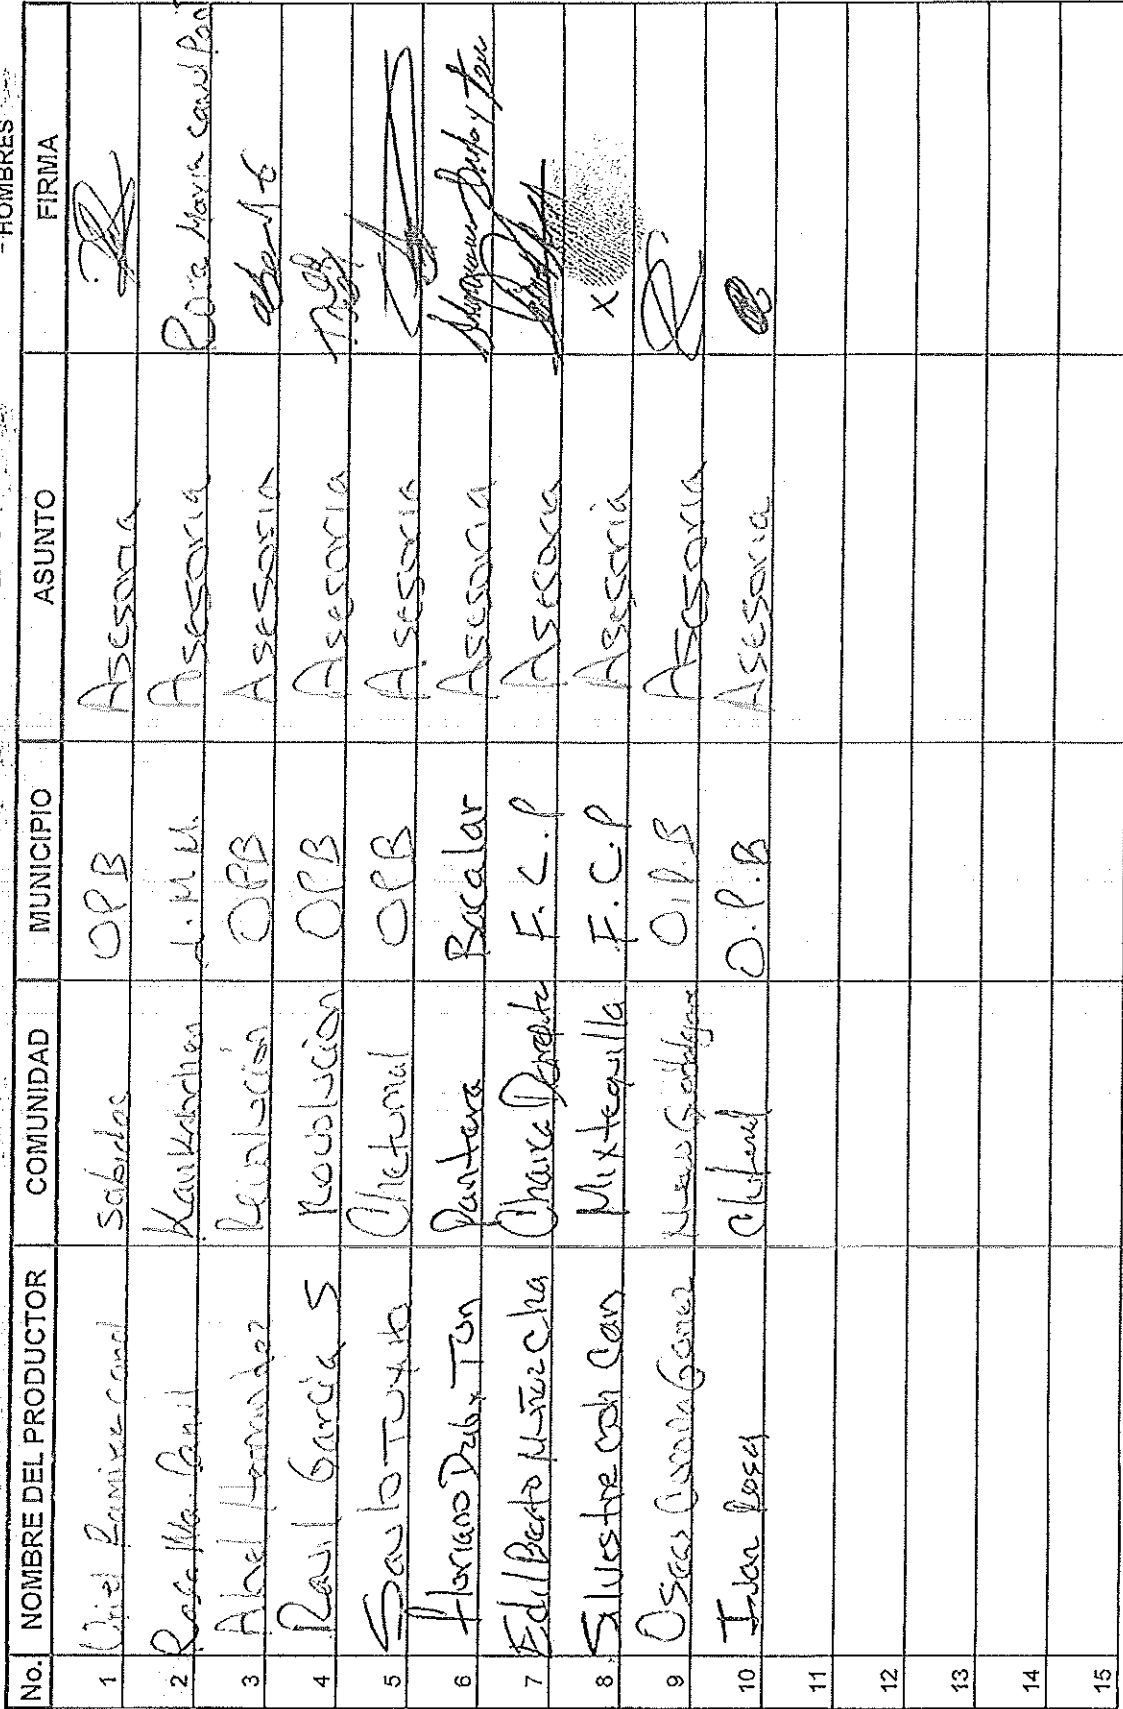 HOMBRES
No. NOMBRE DEL PRODUCTOR COMUNIDAD MUNICIPIO ASUNTO FIRMA
1 Uriel Ramirez canul Sabidos OPB Asesoria
2 Rosa Ma. Canul Kankabchen J.M.M. Asesoria Rosa Maria Canul
3 Abnel Hernandez Revolución OPB Asesoria
4 Raul García S Revolución OPB Asesoria
5 Saulo Tuyub Chetumal OPB Asesoria
6 Floriano Dzib y Tun Pantera Bacalar Asesoria
7 EdilBerto Muñoz Cha F.C.P Asesoria
8 Silvestre coh Can Mixtequilla F.C.P Asesoria X
9 Oseas Gomez Nuevo Guadalajara O.P.B Asesoria
10 Ivan Rosas Chetumal O.P.B Asesoria
11
12
13
14
15